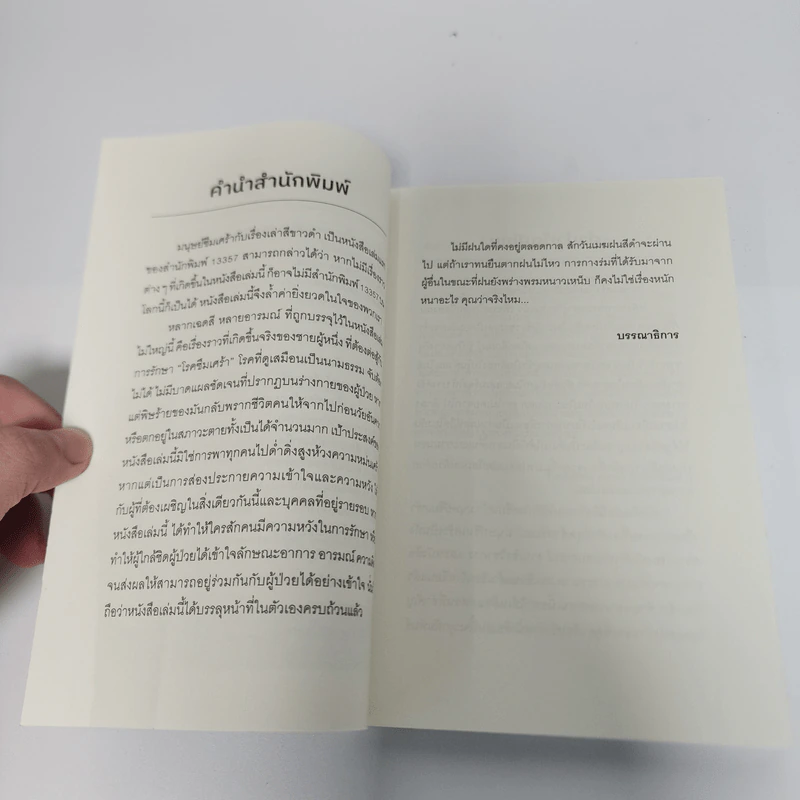 คำนำสำนักพิมพ์
มนุษย์ซึมเศร้ากับเรื่องเล่าสีขาวดำ เป็นหนังสือเล่มแรก
ของสำนักพิมพ์ 13357 สามารถกล่าวได้ว่า หากไม่มีเรื่องราว
ต่างๆ ที่เกิดขึ้นในหนังสือเล่มนี้ ก็อาจไม่มีสำนักพิมพ์ 13357
โลกนี้ก็เป็นได้ หนังสือเล่มนี้จึงล้ำค่ายิ่งยวดในใจของพวกเรา
หลากเฉดสี หลายอารมณ์ ที่ถูกบรรจุไว้ในหนังสือเล่ม
ไม่ใหญ่นี้ คือเรื่องราวที่เกิดขึ้นจริงของชายผู้หนึ่ง ที่ต้องต่อสู้
การรักษา “โรคซึมเศร้า” โรคที่ดูเสมือนเป็นนามธรรม จับต้อง
ไม่ได้ ไม่มีบาดแผลชัดเจนที่ปรากฏบนร่างกายของผู้ป่วย
แต่พิษร้ายของมันกลับพรากชีวิตคนให้จากไปก่อนวัยอันควร
หรือตกอยู่ในสภาวะตายทั้งเป็นได้จำนวนมาก เป้าประสงค์ของ
หนังสือเล่มนี้มิใช่การพาทุกคนไปดำดิ่งสู่ห้วงความหม่นเศร้า
หากแต่เป็นการส่องประกายความเข้าใจและความหวัง
กับผู้ที่ต้องเผชิญในสิ่งเดียวกันนี้และบุคคลที่อยู่รายรอบ หาก
หนังสือเล่มนี้ ได้ทำให้ใครสักคนมีความหวังในการรักษา
ทำให้ผู้ใกล้ชิดผู้ป่วยได้เข้าใจลักษณะอาการ อารมณ์ ความคิด
จนส่งผลให้สามารถอยู่ร่วมกันกับผู้ป่วยได้อย่างเข้าใจ
ถือว่าหนังสือเล่มนี้ได้บรรลุหน้าที่ในตัวเองครบถ้วนแล้ว
ไม่มีฝนใดที่คงอยู่ตลอดกาล สักวันเมฆฝนสีดำจะผ่าน
ไป แต่ถ้าเราทนยืนตากฝนไม่ไหว การกางร่มที่ได้รับมาจาก
ผู้อื่นในขณะที่ฝนยังพร่างพรมหนาวเหน็บ ก็คงไม่ใช่เรื่องหนัก
หนาอะไร คุณว่าจริงไหม...
บรรณาธิการ